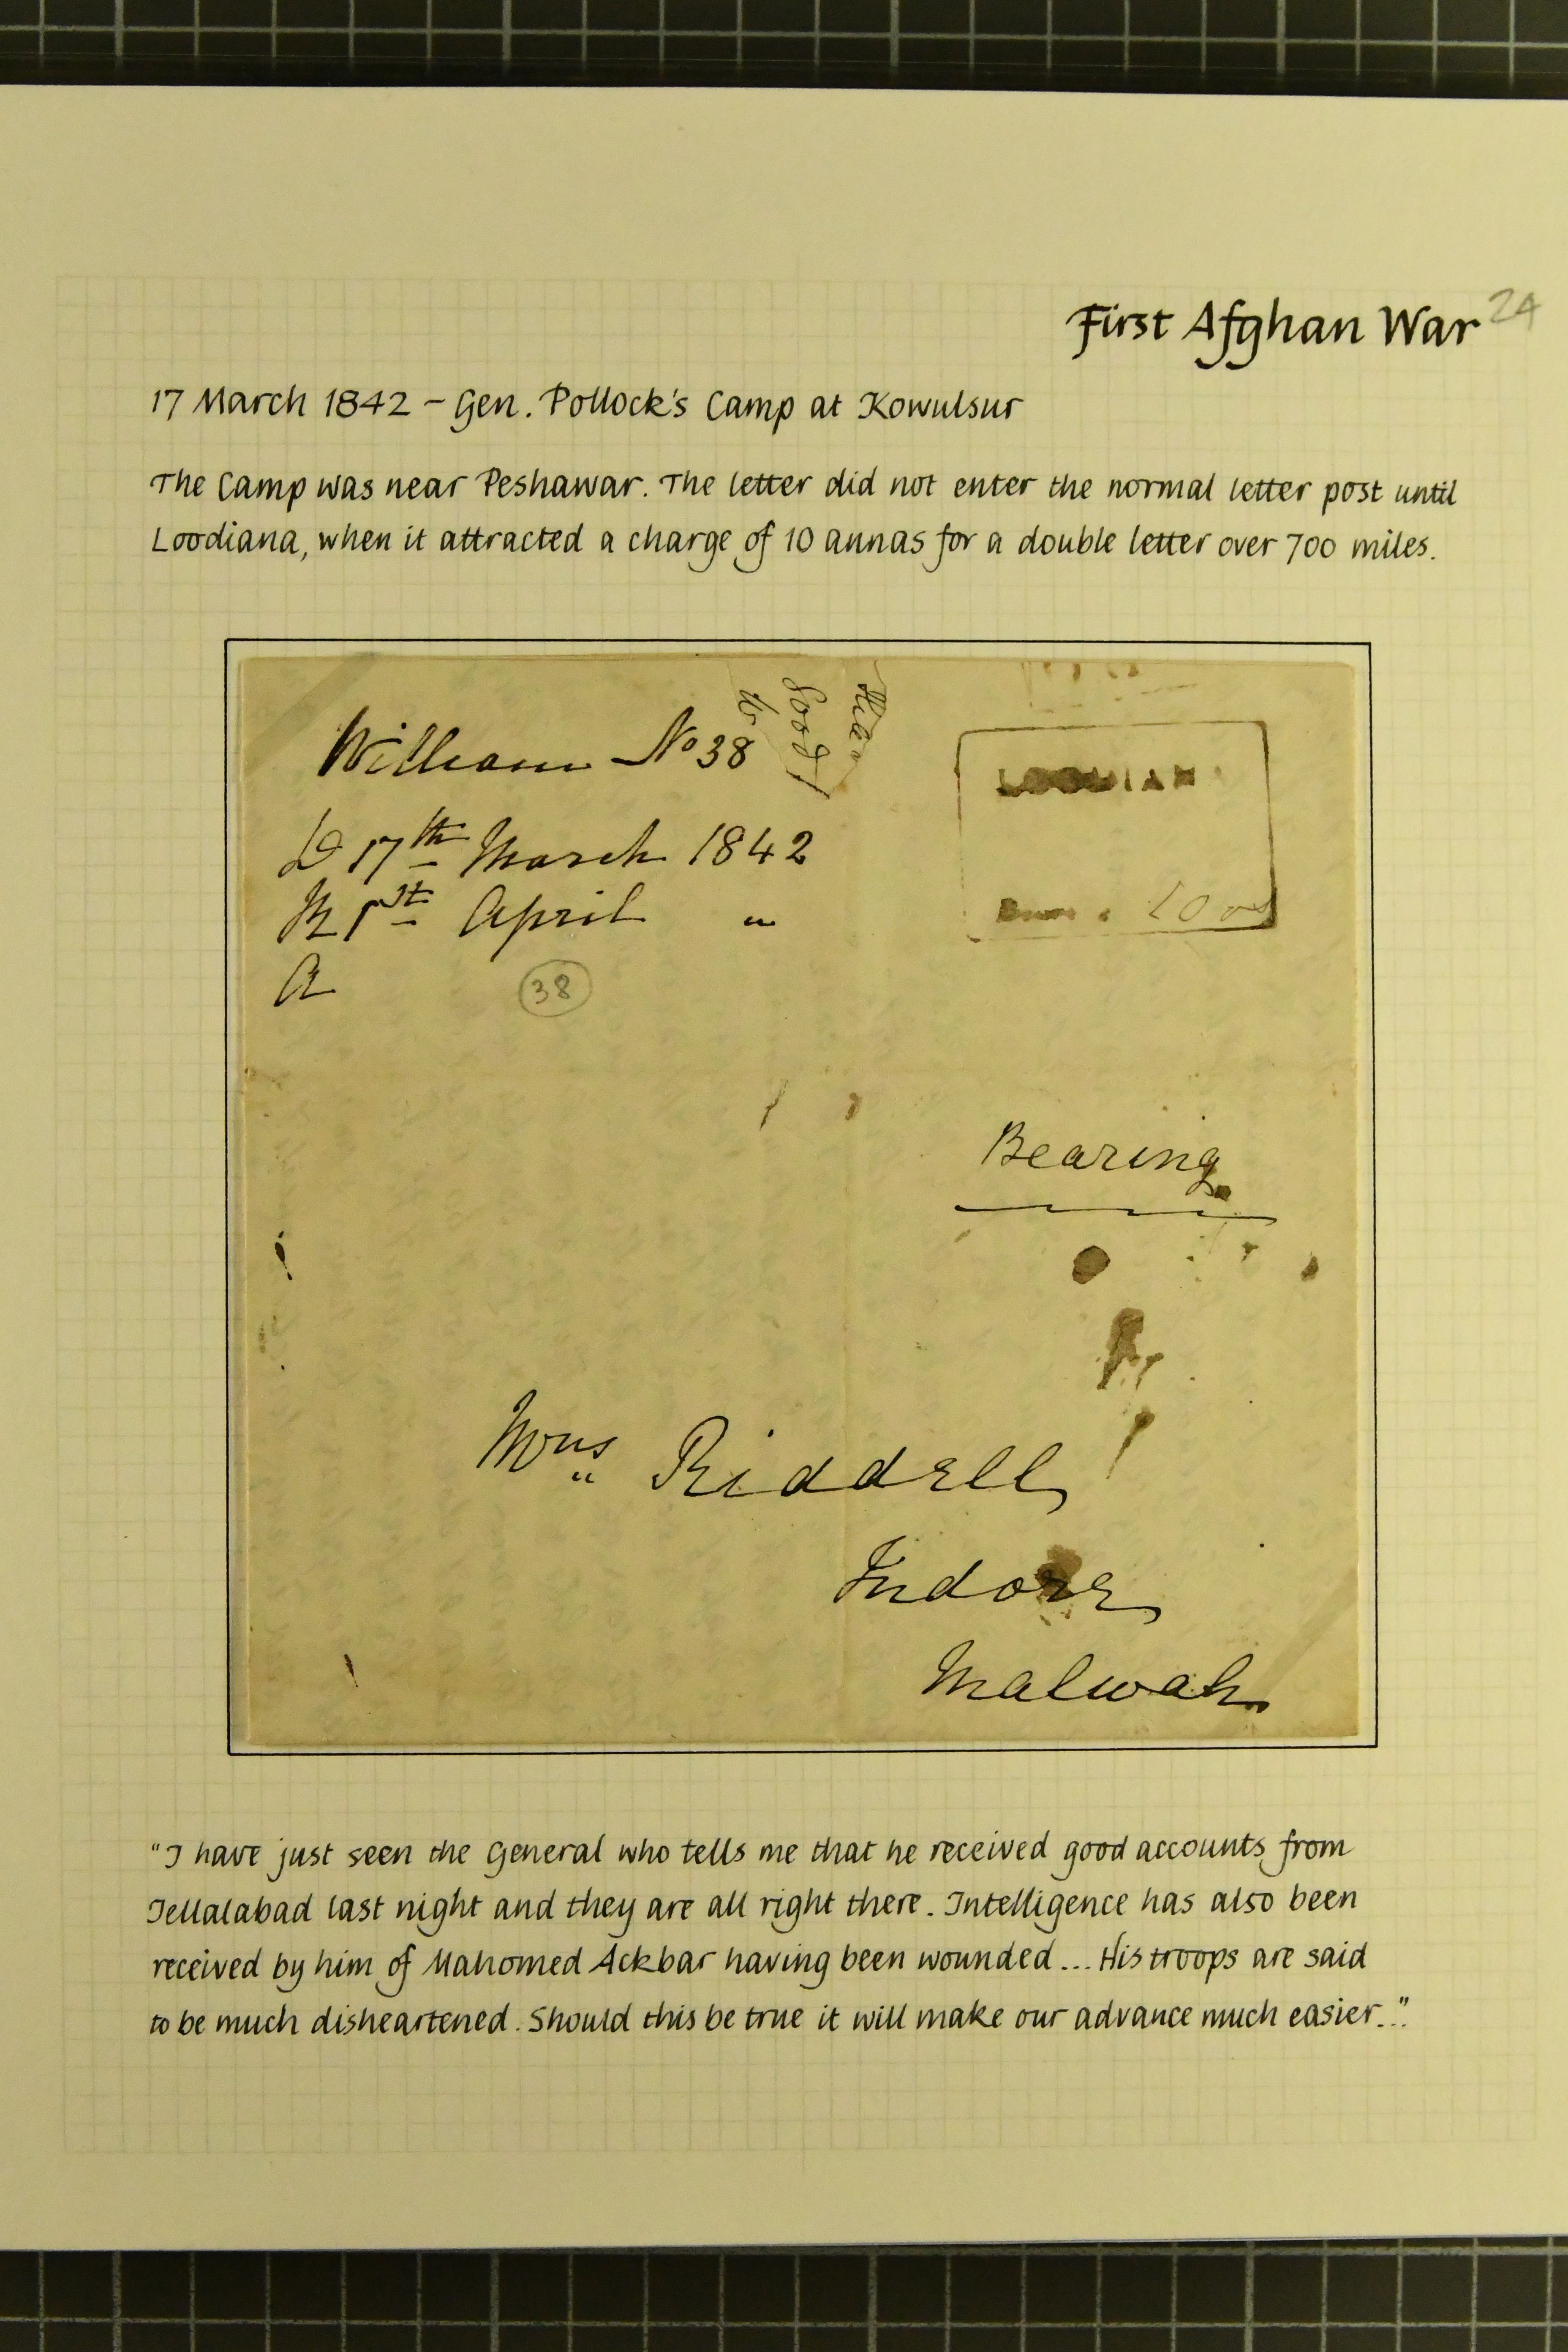 First Afghan War 24
17 March 1842 - Gen. Pollock's Camp at Kowulsur
The Camp was near Peshawar. The letter did not enter the normal letter post until
Loodiana, when it attracted a charge of 10 annas for a double letter over 700 miles.
William No 38
D 17th March 1842
R 1st April "
A
38
LOODIAN
10 as
Bearing
Mrs Riddell
Indore
Malwah
"I have just seen the General who tells me that he received good accounts from
Jellalabad last night and they are all right there. Intelligence has also been
received by him of Mahomed Ackbar having been wounded... His troops are said
to be much disheartened. Should this be true it will make our advance much easier..."